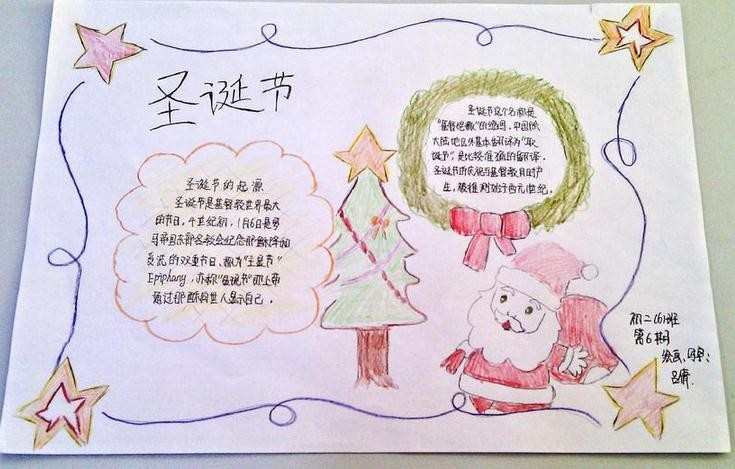 圣诞节
圣诞节的起源
圣诞节是基督教世界最大
的节日。4世纪初,1月6日是罗
马帝国东部各教会纪念耶稣降和
受洗的双重节日、称为"主显节"
Epiphany,亦称"显现节"即上帝
通过耶稣向世人显示自己。
圣诞节这个名称是
"基督弥撒"的缩写。中国
大陆地区外基本翻译为"
诞节",是比较准确的翻译。
圣诞节庆祝基督教
生,
初二(6)班
第6期
绘画、